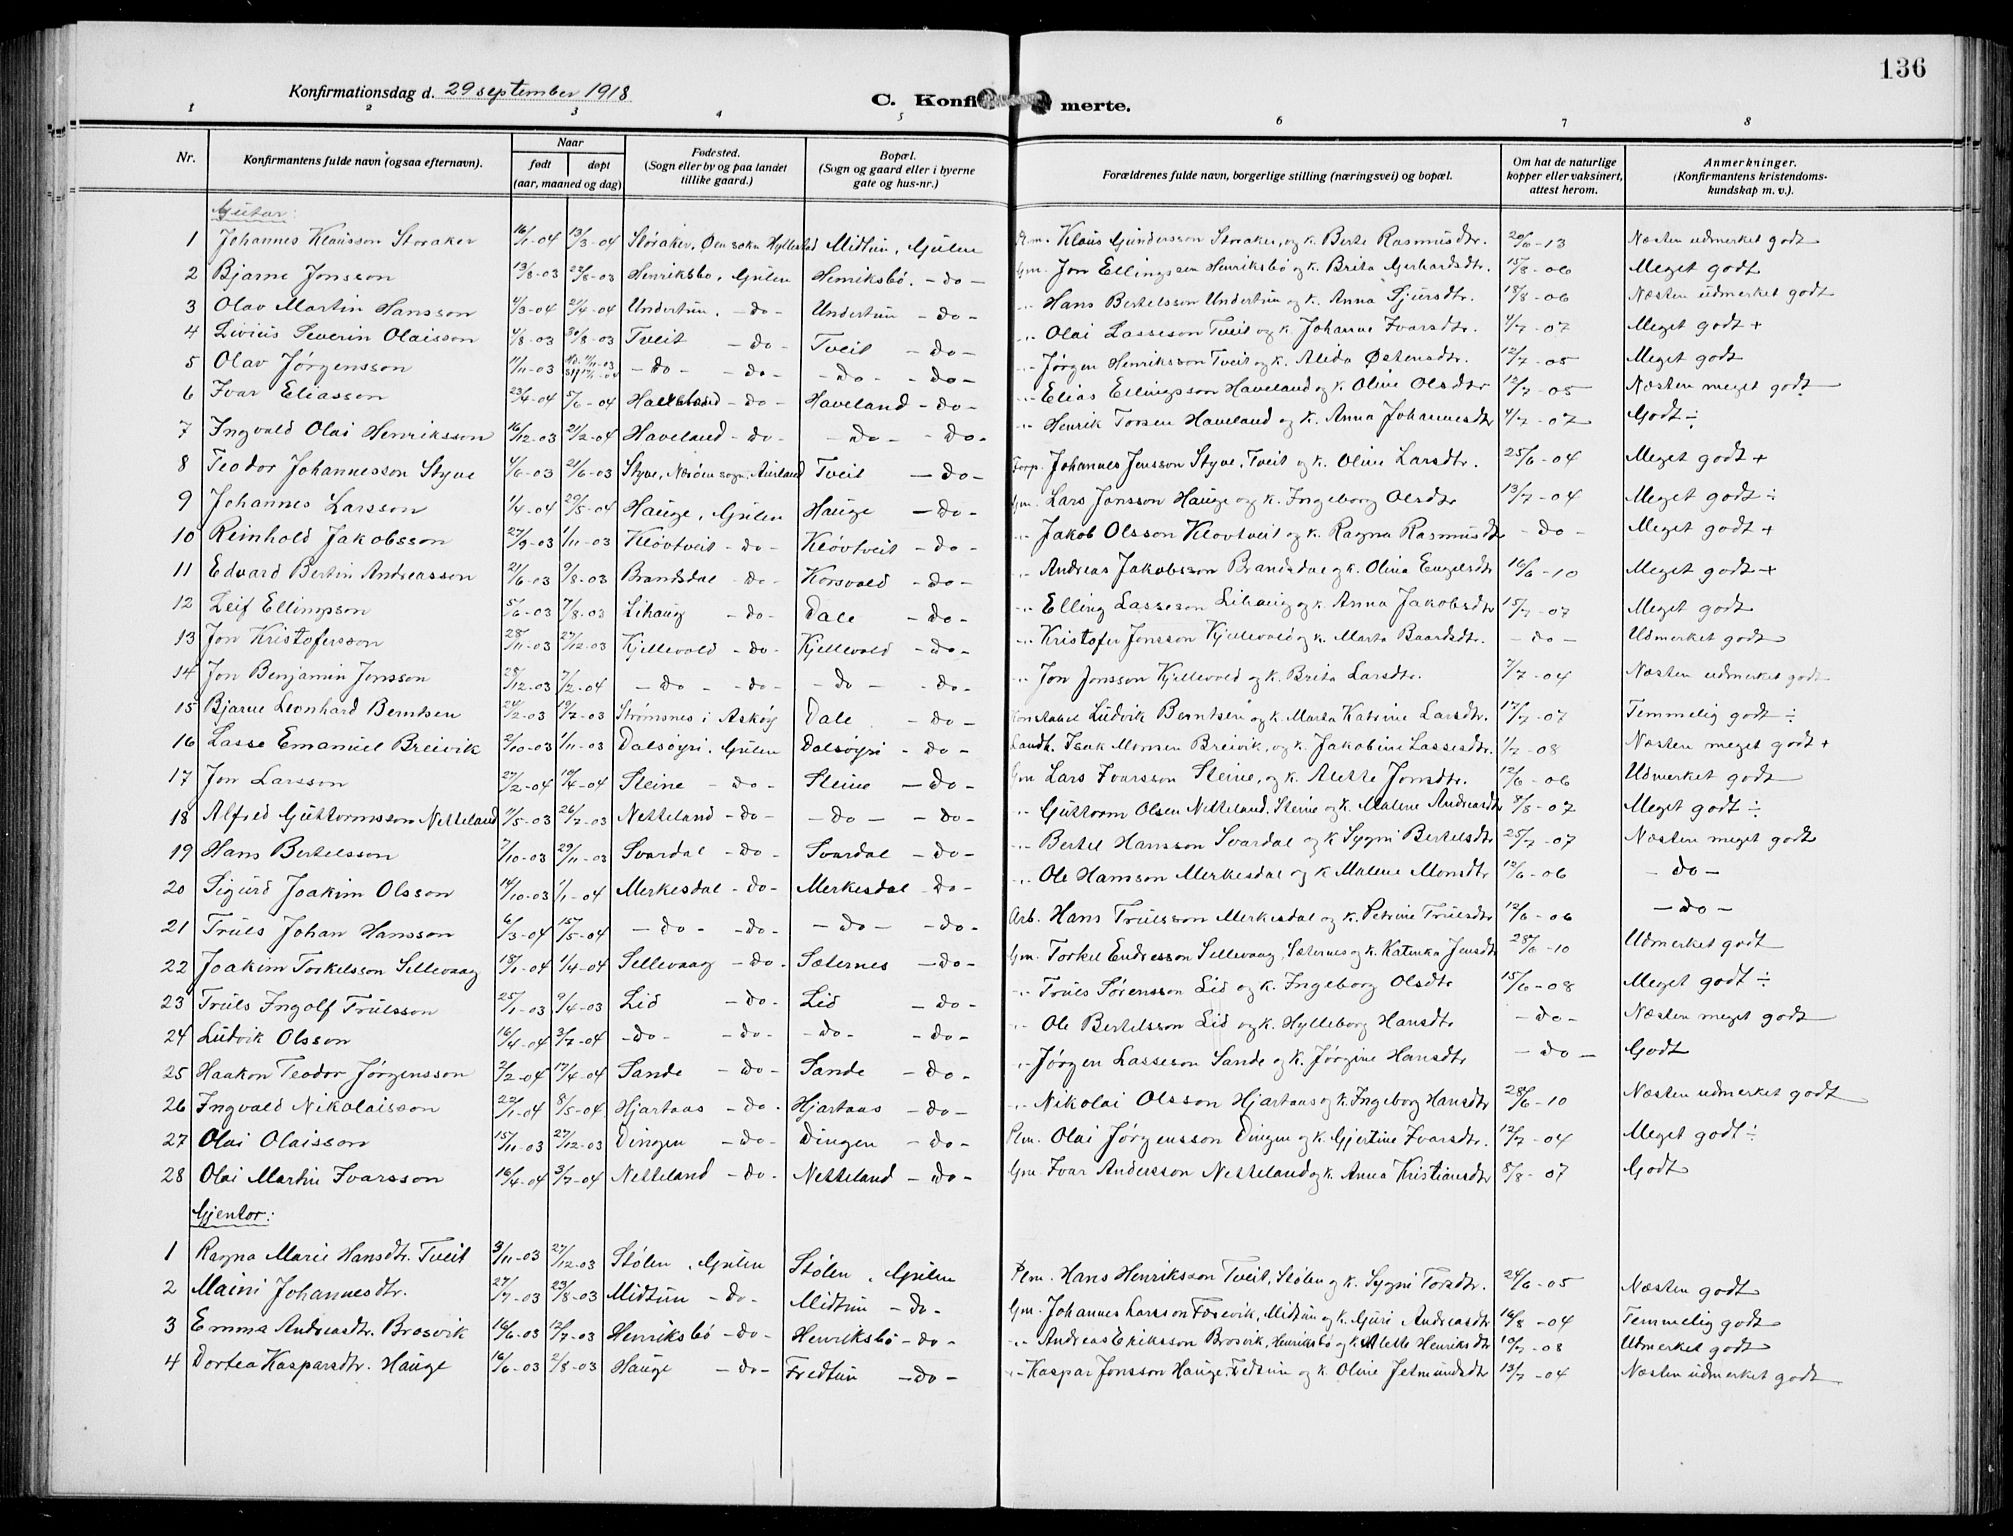 136
Konfirmationsdag d. 29 september 1918
C. Konfi merte.
1 2 3 4 5 6 7 8
Nr. Konfirmantens fulde navn (ogsaa efternavn). Naar født døpt (aar, maaned og dag) Fødested. (Sogn eller by og paa landet tillike gaard.) Bopæl. (Sogn og gaard eller i byerne gate og hus-nr.) Forældrenes fulde navn, borgerlige stilling (næringsvei) og bopæl. Om hat de naturlige kopper eller vaksinert, attest herom. Anmerkninger. (Konfirmantens kristendomskundskap m. v.).
Gutar:
1 Johannes Klausson Storaker 16/1-04 13/3-04 Storaker, Øen sokn Hyllestad Midtun, Gulen Plm. Klaus Gundersson Storaker, og k. Berte Rasmusdtr. 20/6-13 Næsten udmerket godt
2 Bjarne Jonsson 13/8-03 27/8-03 Henriksbø, Gulen Henriksbø. -do- Gm. Jon Ellingsen Henriksbø og k. Brita Gerhardsdtr. 15/8-06 Meget godt
3 Olav Martin Hansson 4/3-04 21/4-04 Undertun. -do- Undertun -do- " Hans Bertelsson Undertun og k. Anna Sjursdtr. 18/8-06 Næsten udmerket godt
4 Livius Severin Olaisson 4/8-03 30/8-03 Tveit -do- Tveit -do- " Olai Lasseson Tveit og k. Johanne Ivarsdtr. 4/7-07 Meget godt +
5 Olav Jørgensson 11/11-03 -do- -do- -do- -do- " Jørgen Henriksson Tveit og k. Alida Østensdtr. 12/7-05 Meget godt
6 Ivar Eliasson 23/4-04 5/6-04 Haveland -do- Haveland -do- " Elias Ellingsson Haveland og k. Oline Olsdtr 12/7-05 Næsten meget godt
7 Ingvald Olai Henriksson 16/12-03 21/2-04 Haveland -do- -do- -do- " Henrik Torsen Haveland og k. Anna Johannesdtr 4/7-07 Godt ÷
8 Teodor Johannesson Styve 4/6-03 21/6-03 Styve, Nærøen sogn, Aurland Tveit -do- Forp. Johannes Jensson Styve, Tveit og k. Oline Larsdtr. 25/6-04 Meget godt +
9 Johannes Larsson 1/4-04 29/5-04 Hauge, Gulen Hauge -do- Gm. Lars Jonsson Hauge og k. Ingeborg Olsdtr 13/7-04 Meget godt ÷
10 Reinhold Jakobsson 27/9-03 1/11-03 Kløvtveit -do- Kløvtveit -do- " Jakob Olsson Kløvtveit og k. Ragna Rasmusdtr -do- Meget godt +
11 Edvard Bertin Andreassen 21/6-03 9/8-03 Brandsdal -do- Korsvold -do- " Andreas Jakobsson Brandsdal og k. Olina Engelsdtr 16/6-10 Meget godt +
12 Leif Ellingson 5/6-03 7/8-03 Lihaug -do- Dale -do- " Elling Lasseson Lihaug og k. Anna Jakobsdtr 15/7-07 Meget godt
13 Jon Kristofersson 28/11-03 27/12-03 Kjellevold -do- Kjellevold -do- " Kristofer Jonsson Kjellevold og k. Marta Baardsdtr. -do- Udmerket godt
14 Jon Benjamin Jonsson 28/12-03 7/2-04 -do- -do- -do- -do- " Jon Jonsson Kjellevold og k. Brita Larsdtr. 7/7-04 Næsten udmerket godt
15 Bjarne Leonhard Berntsen 24/2-03 19/7-03 Strømsnes i Askøy Dale -do- Ludvik Berntsen og k. Marta Katrine Larsdtr. 17/7-07 Temmelig godt ÷
16 Lasse Emanuel Breivik 2/10-03 1/11-03 Dalsøyri, Gulen Dalsøyri -do- Landh. Isak Monsen Breivik, og k. Jakobine Lassesdtr. 1/7-08 Næsten meget godt +
17 Jon Larsson 27/2-04 10/4-04 Steine -do- Steine -do- Gm Lars Ivarsson Steine, og k. Alette Jonsdtr. 12/6-06 Udmerket godt
18 Alfred Guttormsson Netteland 11/5-03 26/7-03 Netteland -do- -do- -do- " Guttorm Olsen Netteland, Steine og k. Malene Andreasdtr 8/8-07 Meget godt ÷
19 Hans Bertelsson 7/10-03 29/11-03 Svardal -do- Svardal -do- " Bertel Hansson Svardal og k. Sygni Bertelsdtr 25/7-07 Næsten meget godt
20 Sigurd Joakim Olsson 14/10-03 1/1-04 Merkesdal -do- Merkesdal -do- " Ole Hansson Merkesdal og k. Malene Monsdtr 12/6-06 -do-
21 Truls Johan Hansson 6/3-04 15/5-04 -do- -do- -do- -do- Arb. Hans Trulsson Merkesdal og k. Petrine Trulsdtr 12/6-06 -do-
22 Joakim Torkelsson Sellevaag 18/1-04 1/4-04 Sellevaag -do- Sæternes -do- Gm. Torkel Endresson Sellevaag, Sæternes og k. Katinka Jensdtr 28/6-10 Udmerket godt
23 Truls Ingolf Trulsson 25/1-03 9/4-03 Lid -do- Lid -do- " Truls Sørensson Lid og k. Ingeborg Olsdtr 15/6-08 Meget godt ÷
24 Ludvik Olsson 16/4-04 3/7-04 -do- -do- -do- -do- " Ole Bertelsson Lid og k. Hylleborg Hansdtr -do- Næsten meget godt
25 Haakon Teodor Jørgensson 2/2-04 17/4-04 Sande -do- Sande -do- " Jørgen Lasseson Sande og k. Jørgine Hansdtr -do- Godt
26 Ingvald Nikolaisson 22/1-04 8/5-04 Hjartaas -do- Hjartaas -do- " Nikolai Olsson Hjartaas og k. Ingeborg Hansdtr 28/6-10 Næsten udmerket godt
27 Olai Olaisson 15/11-03 27/12-03 Dingen -do- Dingen -do- Plm. Olai Jørgensson Dingen og k. Gjertine Ivarsdtr. 12/7-04 Meget godt ÷
28 Olai Martin Ivarsson 16/4-04 3/7-04 Netteland -do- Netteland -do- Gm. Ivar Andersson Netteland og k. Anna Kristiansdtr 8/8-07 Godt
Gjentor:
1 Ragna Marie Hansdtr. Tveit 3/11-03 27/12-03 Stølen, Gulen Stølen, Gulen Plm. Hans Henriksson Tveit, Stølen og k. Sygni Torsdtr. 24/6-05 Næsten godt
2 Maini Johannesdtr. 27/7-03 23/8-03 Midtun -do- Midtun -do- Gm. Johannes Larsson Fosevik, Midtun og k. Guri Andreasdtr 16/8-04 Temmelig godt
3 Emma Andreasdtr. Brosvik 16/6-03 12/7-03 Henriksbø -do- Henriksbø -do- " Andreas Eriksson Brosvik, Henriksbø og k. Alette Henriksdtr 10/7-08 Udmerket godt
4 Dortea Kasparsdtr. Hauge 16/6-03 2/8-03 Hauge -do- Fredtun -do- " Kaspar Jonsson Hauge, Fredtun og k. Oline Jetmundsdtr 13/7-04 Næsten udmerket godt